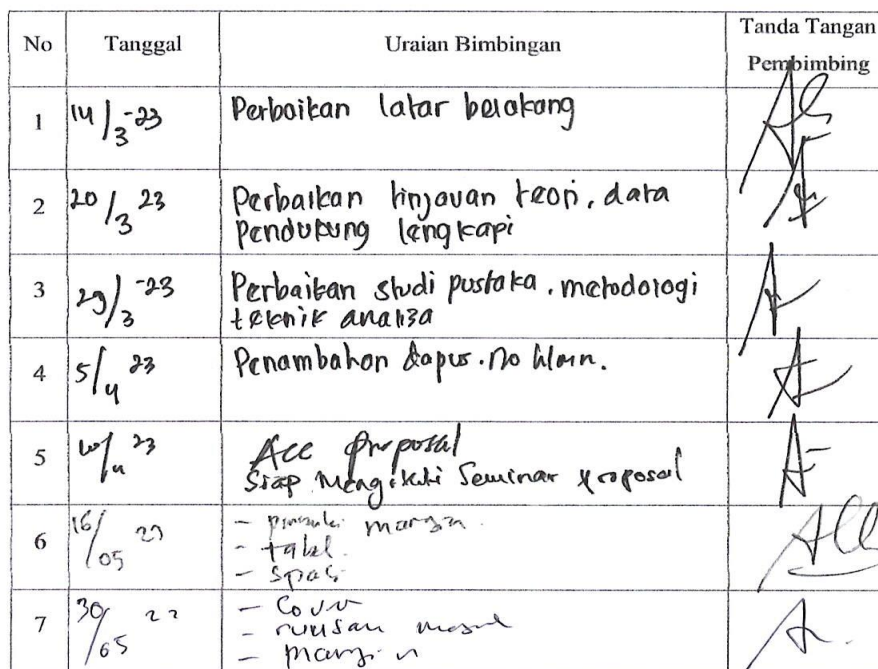 No Tanggal Uraian Bimbingan Tanda Tangan
Pembimbing
1 14/3-23 Perbaikan latar belakang
2 20/3 23 Perbaikan tinjauan teori, data
pendukung lengkapi
3 29/3-23 Perbaikan studi pustaka. metodologi
teknik analisa
4 5/4 23 Penambahan dapus. no hlmn.
5 /4 23 Acc proposal
Siap Mengikuti Seminar proposal
6 16/05 23 - margin
- tabel
- spasi
7 30/05 - Cover
- rumusan
- margin